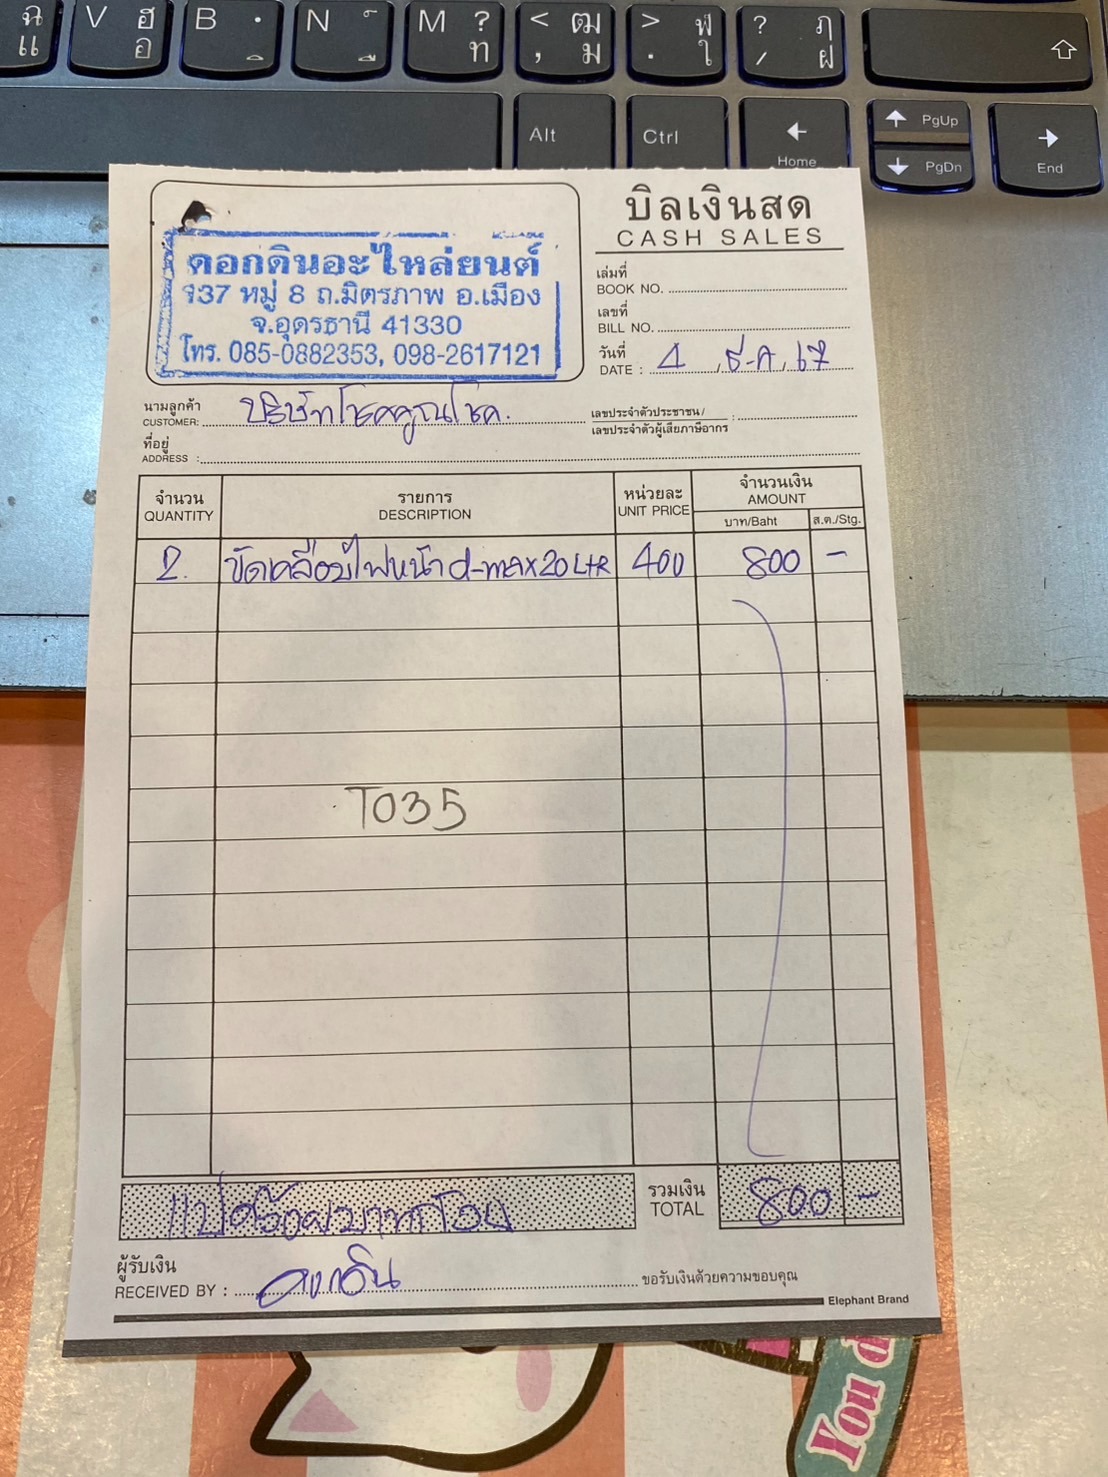 ฉ
แ
V ฮ
อ
B .
ฺ
N ์
ื
M ?
ท
< ฒ
, ม
> ฬ
. ใ
? ฦ
/ ฝ
Alt
Ctrl
Home
PgUp
PgDn
End
บิลเงินสด
CASH SALES
ดอกดินอะไหล่ยนต์
137 หมู่ 8 ถ.มิตรภาพ อ.เมือง
จ.อุดรธานี 41330
โทร. 085-0882353, 098-2617121
เล่มที่
BOOK NO.
เลขที่
BILL NO.
วันที่
DATE : 4 , ธ-ค , 67
นามลูกค้า
CUSTOMER: บริษัทโชคคูณโชค.
เลขประจำตัวประชาชน /
เลขประจำตัวผู้เสียภาษีอากร :
ที่อยู่
ADDRESS :
จำนวน
QUANTITY
รายการ
DESCRIPTION
หน่วยละ
UNIT PRICE
จำนวนเงิน
AMOUNT
บาท/Baht ส.ต./Stg.
2. ขัดเคลือบไฟหน้า d-max20 L+R 400 800 -
T035
แปดร้อยบาทถ้วน
รวมเงิน
TOTAL
800 -
ผู้รับเงิน
RECEIVED BY : ดอกดิน
ขอรับเงินด้วยความขอบคุณ
Elephant Brand
You